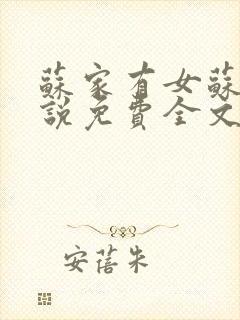 蘇家有女蘇
說免費全文
安蓓朱